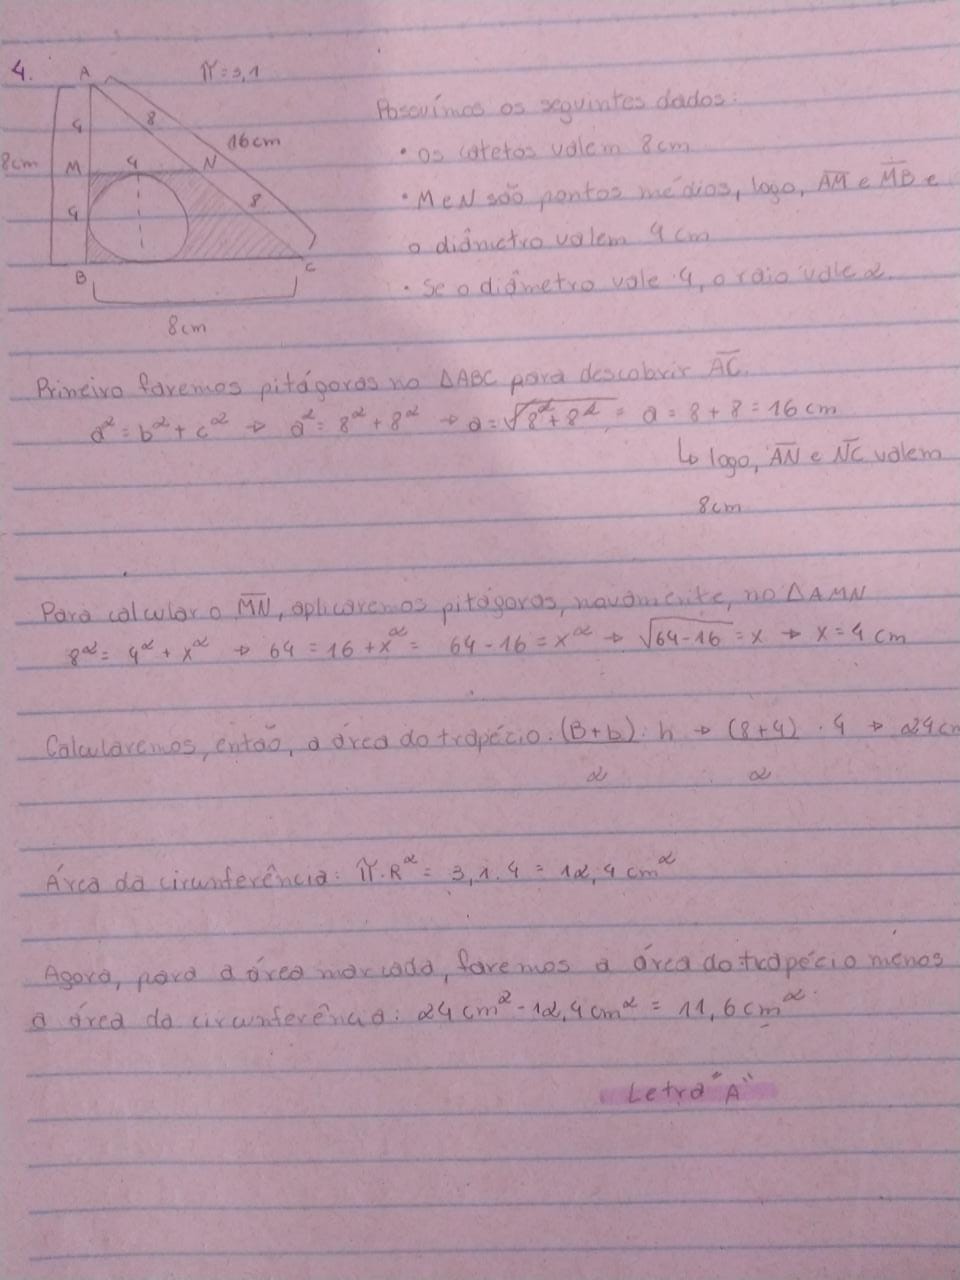 4.
A
π = 3,1
4
8
16cm
8cm
M
4
N
4
8
B
C
8cm
Possuímos os seguintes dados:
• os catetos valem 8cm
• M e N são pontos médios, logo, AM e MB e
o diâmetro valem 4 cm
• Se o diâmetro vale 4, o raio vale 2.
Primeiro faremos pitágoras no ΔABC para descobrir AC.
a² = b² + c² → a² = 8² + 8² → a = √8² + 8² = a = 8 + 8 = 16 cm
↳ logo, AN e NC valem
8cm
Para calcular o MN, aplicaremos pitágoras, novamente, no ΔAMN
8² = 4² + x² → 64 = 16 + x² = 64 - 16 = x² → √64 - 16 = x → x = 4 cm
Calcularemos, então, a área do trapécio: (B + b) . h → (8 + 4) . 4 → 24 cm
2 2
Área da cirunferência: π . R² = 3,1 . 4 = 12,4 cm²
Agora, para a área marcada, faremos a área do trapécio menos
a área da cirunferência: 24 cm² - 12,4 cm² = 11,6 cm².
Letra "A"